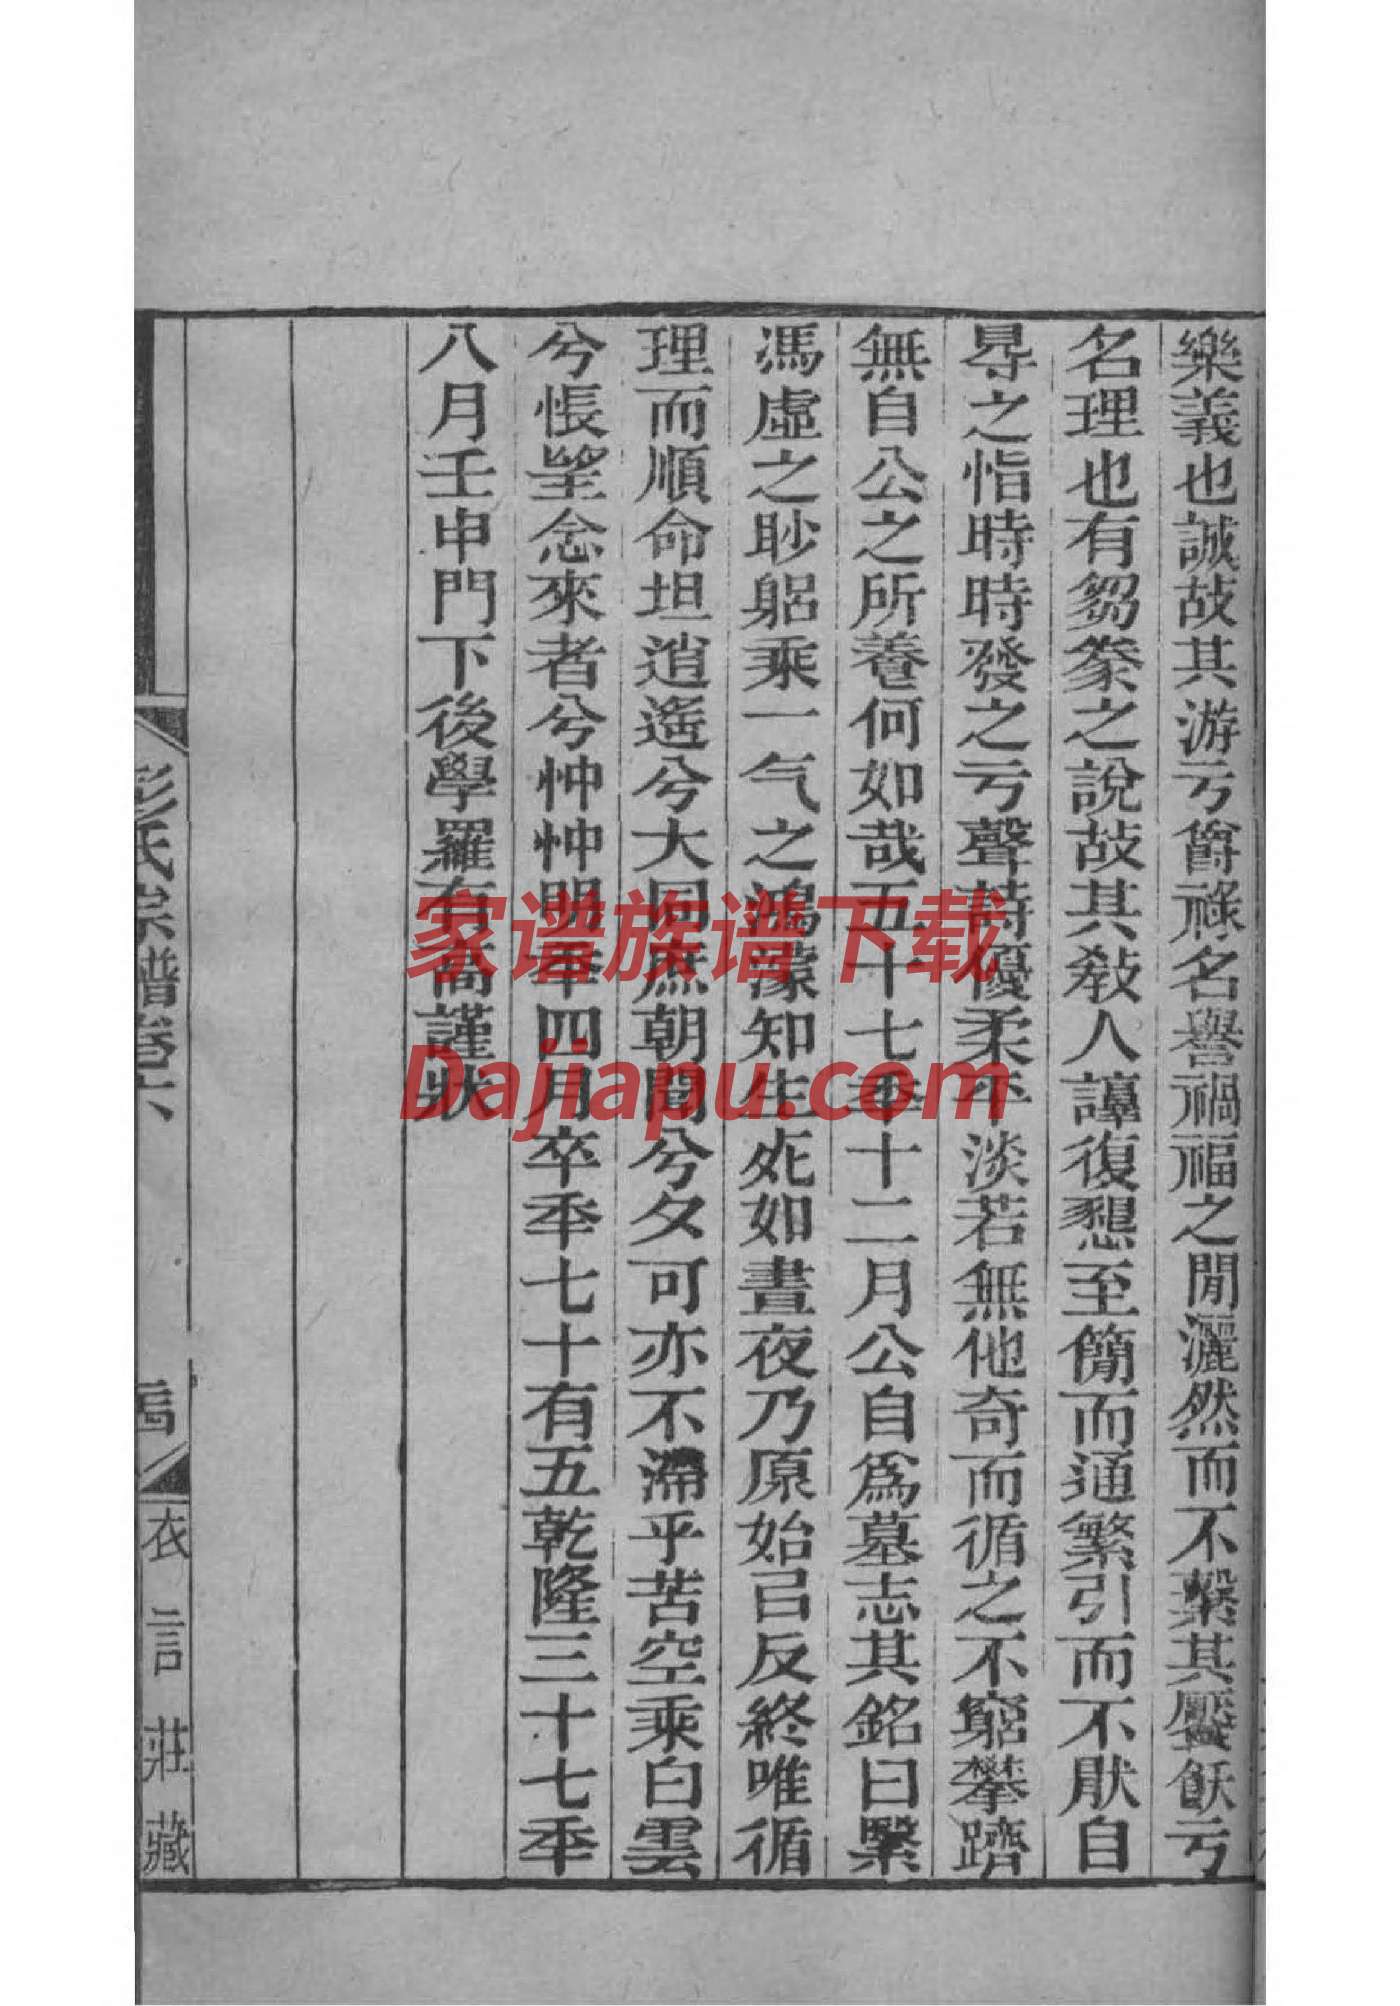 樂義也誠故其游亏爵祿名譽禍福之閒灑然而不繫其饜飫亏
名理也有芻豢之說故其敎人諄復懇至簡而通繁引而不厭自
㝵之恉時時發之亏聲詩優柔平淡若無他奇而循之不窮攀躋
無自公之所養何如哉五十七秊十二月公自爲墓志其銘曰緊
馮虛之眇躳乘一气之鴻濛知生死如晝夜乃原始㠯反終唯循
理而順命坦逍遙兮大同庶朝聞兮夕可亦不滯乎苦空乘白雲
兮悵望念來者兮忡忡明秊四月卒秊七十有五乾隆三十七秊
八月壬申門下後學羅有高謹狀
彭氏宗譜卷六
衣言莊藏
家谱族谱下载
Dajiapu.com